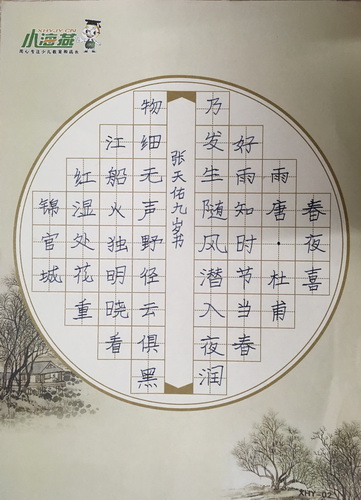 XHYJY.CN
小海燕
春夜喜
雨唐·杜甫
好雨知时节当春
乃发生随风潜入夜润
张天佑九岁书
物细无声野径云俱黑
江船火独明晓看
红湿处花重
锦官城
XHY-02